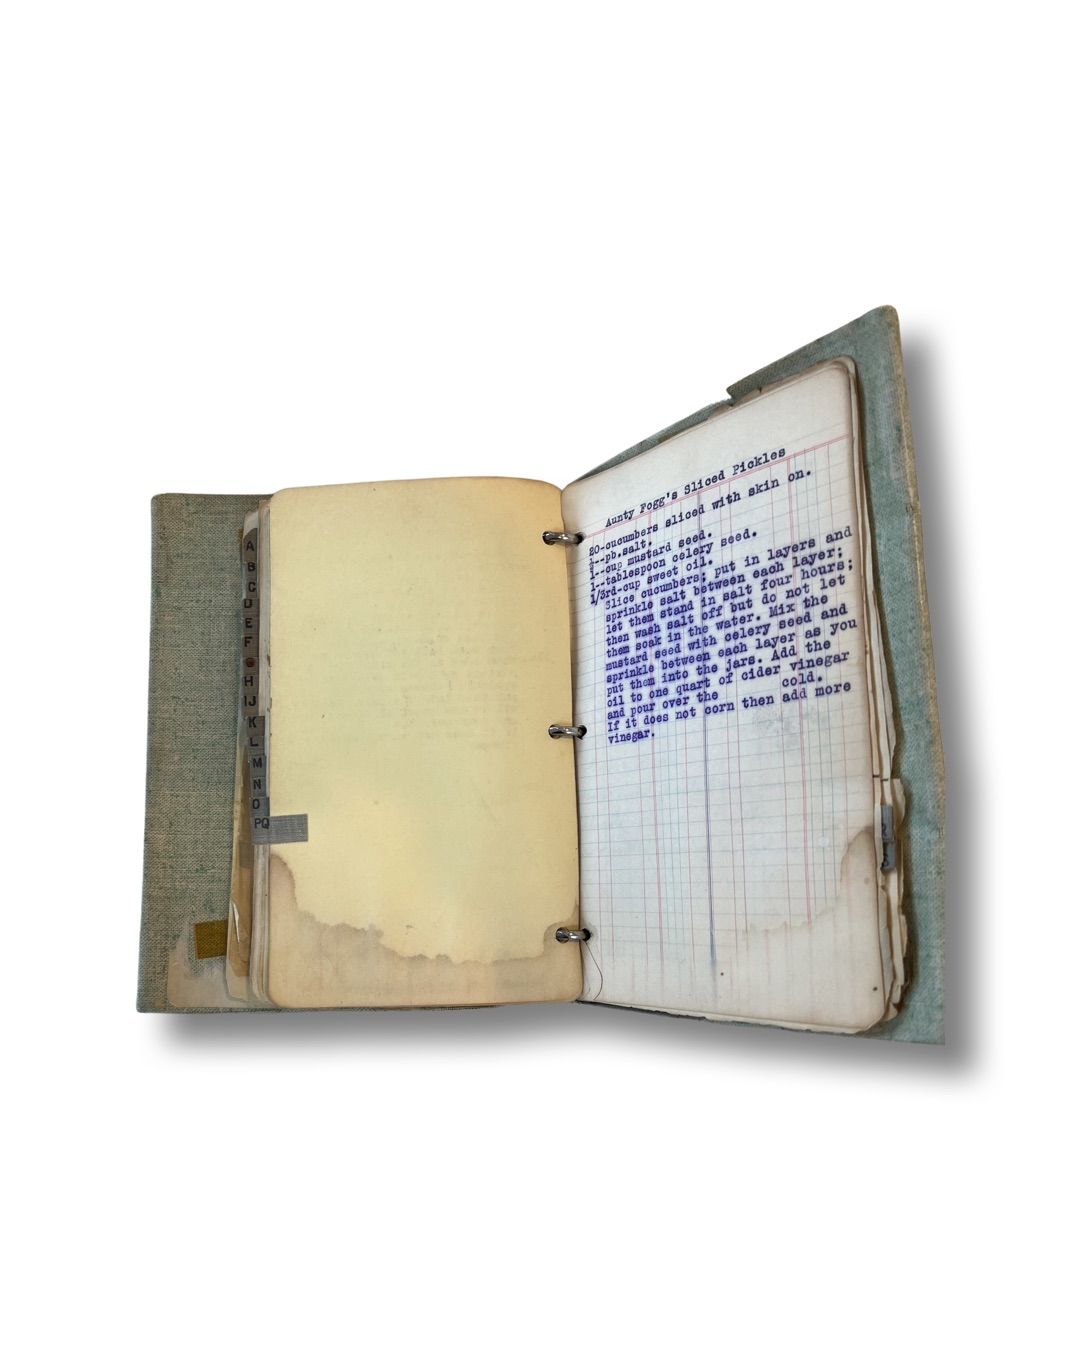 A
B
C
D
E
F
H
IJ
K
L
M
N
O
PQ
Aunty Fogg's Sliced Pickles
20-cucumbers sliced with skin on.
--pb.salt.
1--cup mustard seed.
1--tablespoon celery seed.
1/3rd-cup sweet oil.
Slice cucumbers; put in layers and
sprinkle salt between each layer;
let them stand in salt four hours;
then wash salt off but do not let
them soak in the water. Mix the
mustard seed with celery seed and
sprinkle between each layer as you
put them into the jars. Add the
oil to one quart of cider vinegar
and pour over the cold.
If it does not corn then add more
vinegar.